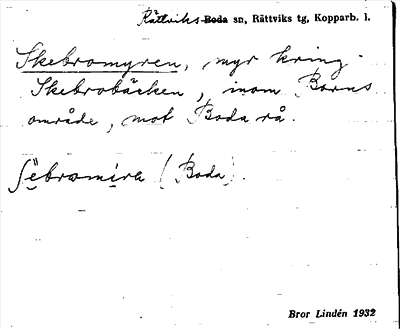 Rättviks Boda sn, Rättviks tg, Kopparb. l.
Skebromyren, myr kring
Skebrobäcken, inom Borns
område, mot Boda rå.
ʃëbromira (Boda).
Bror Lindén 1932